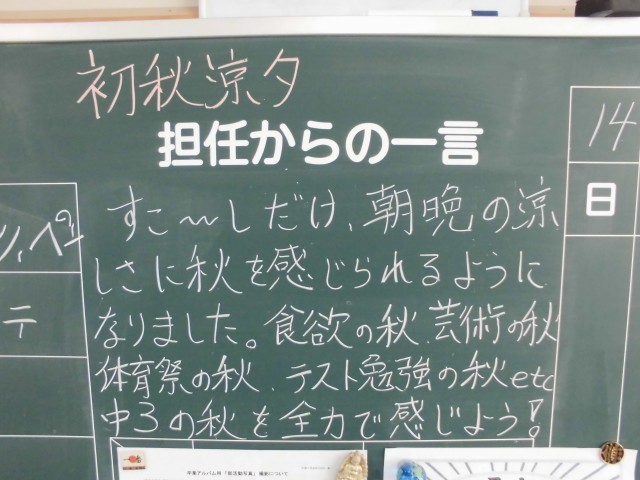 初秋涼夕
担任からの一言
すこ〜しだけ、朝晩の涼
しさに秋を感じられるように
なりました。食欲の秋、芸術の秋
体育祭の秋、テスト勉強の秋etc
中3の秋を全力で感じよう!
14
日
テ
卒業アルバム用「部活動写真」撮影について